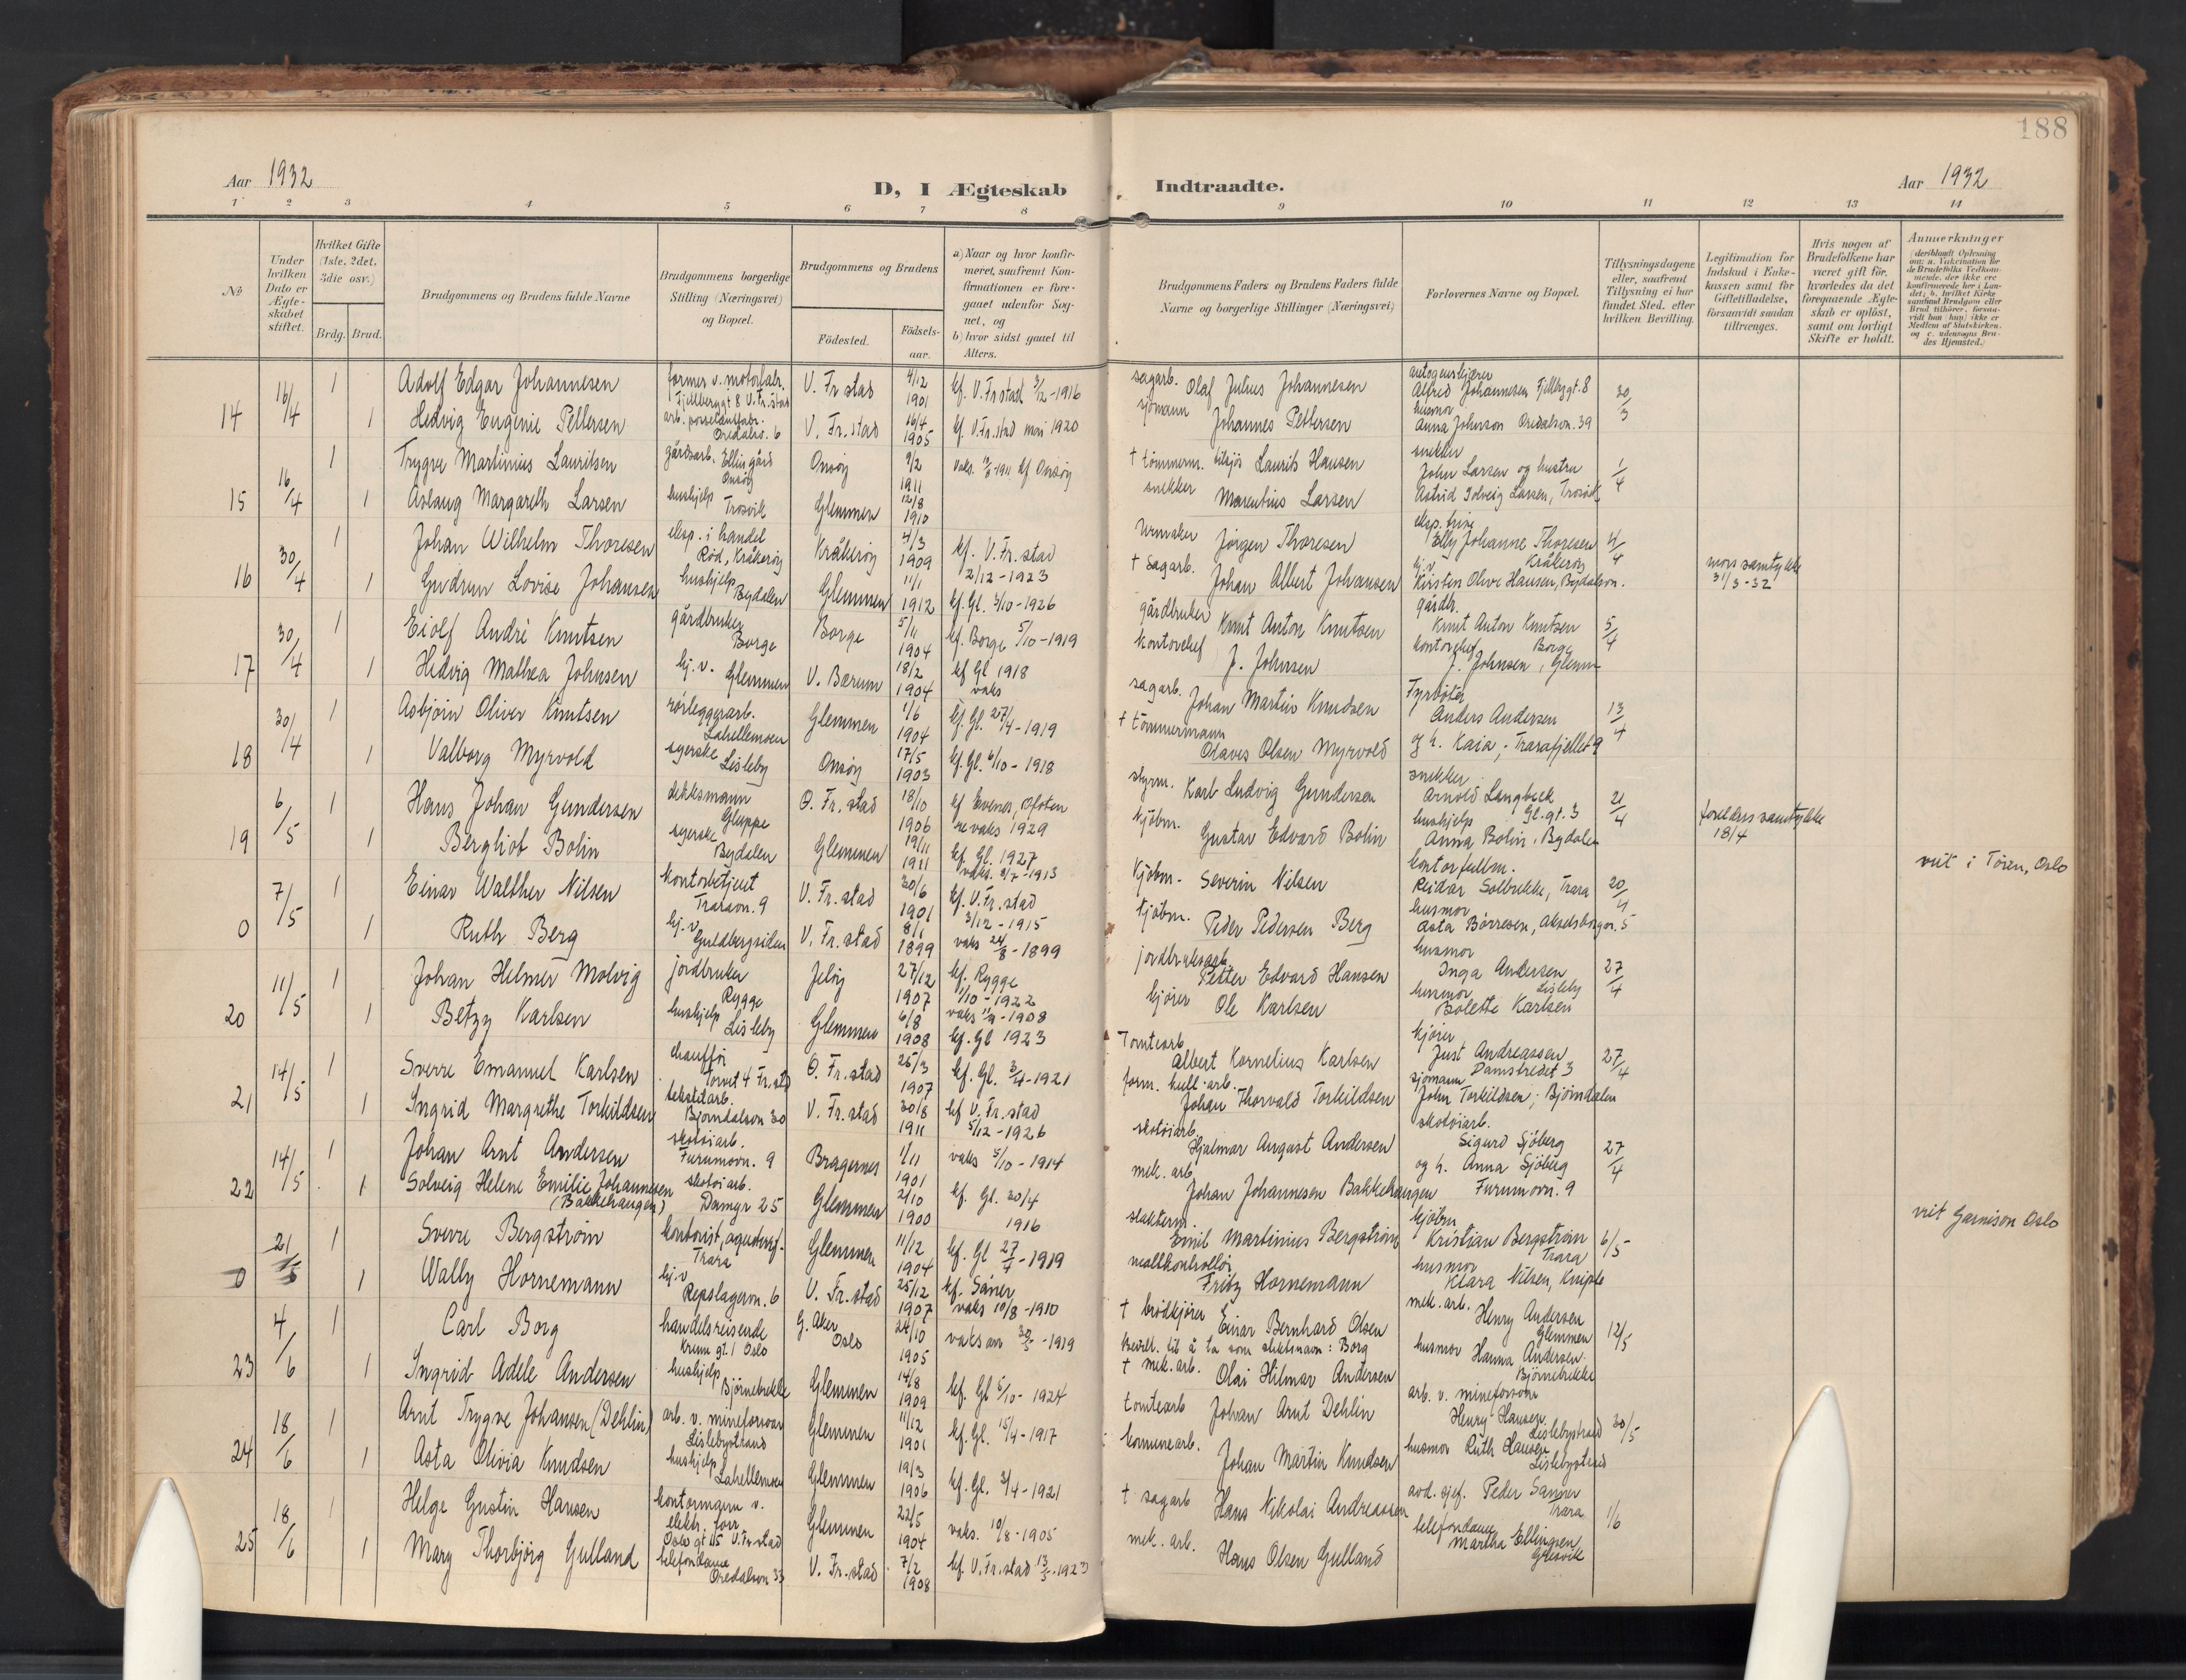 188
Aar 1932
D, I Ægteskab Indtraadte.
Aar 1932
1 2 3 4 5 6 7 8 9 10 11 12 13 14
No
Under hvilken Dato er Ægteskabet stiftet.
Hvilket Gifte (1ste, 2det, 3die osv.)
Brdg. Brud.
Brudgommens og Brudens fulde Navne
Brudgommens borgerlige Stilling (Næringsvei) og Bopæl.
Brudgommens og Brudens
Fødested.
Fødselsaar.
a) Naar og hvor konfirmeret, saafremt Konfirmationen er foregaaet udenfor Sognet, og
b) hvor sidst gaaet til Alters.
Brudgommens Faders og Brudens Faders fulde Navne og borgerlige Stillinger (Næringsvei)
Forlovernes Navne og Bopæl.
Tillysningsdagene eller, saafremt Tillysning ei har fundet Sted, efter hvilken Bevilling.
Legitimation for Indskud i Enkekassen samt for Giftetilladelse, forsaavidt saadan tiltrænges.
Hvis nogen af Brudefolkene har været gift før, hvorledes da det foregaaende Ægteskab er opløst, samt om lovligt Skifte er holdt.
Anmerkninger
(deriblandt Oplysning om: a. Vakcination for de Brudefolks Vedkommende, der ikke ere konfirmerede her i Landet; b. hvilket Kirkesamfund Brudgom eller Brud tilhører, forsaavidt han (hun) ikke er Medlem af Statskirken, og c. udensogns Brudes Hjemsted.)
14 16/4 1 Adolf Edgar Johannesen former v. motorfabr. Fjellberggt 8 V. Fr.stad V. Fr stad 4/12 1901 kf. V. Fr stad 3/12-1916 sagarb. Olaf Julius Johannesen Alfred Johannesen Fjellbggt. 8 30/3
1 Hedvig Eugenie Pettersen arb. porselantfabr. Oredalsv. 6 V. Fr. stad 16/4 1905 kf. V. Fr. stad mai 1920 sjømann Johannes Pettersen husmor Anna Johnson Oredalsvn. 39
15 16/4 1 Trygve Martinius Lauritsen gårdsarb. Elingård Onsøy Onsøy 9/2 1911 kf Onsøy † tømmerm. Laurits Hansen snekker John Larsen og hustru 1/4
1 Aslaug Margareth Larsen hushjelp Trosvik Glemmen 12/8 1910 snekker Marentius Larsen Astrid Solveig Larsen, Trosvik
16 30/4 1 Johan Wilhelm Thoresen eksp. i handel Rød, Kråkerøy Kråkerøy 4/3 1909 kf. V. Fr. stad 2/12-1923 Urmaker Jørgen Thoresen eksp. trise Elly Johanne Thoresen Kråkerøy 4/4
1 Gudrun Lovise Johansen hushjelp Bydalen Glemmen 11/1 1912 kf. Gl. 3/10-1926 † Sagarb. Johan Albert Johansen hj.v. Kirsten Olive Hansen, Bydalsvn. mors samtykke 31/3-32
17 30/4 1 Eiolf Andrè Knutsen gårdbruker Borge Borge 5/11 1904 kf. Borge 5/10-1919 gårdbruker Knut Anton Knutsen gårdbr. Knut Anton Knutsen Borge 5/4
1 Hedvig Mathea Johnsen hj. v. Glemmen V. Bærum 18/2 1904 kf Gl 1918 vaks kontorchef J. Johnsen kontorchef J. Johnsen, Glemm
18 30/4 1 Asbjørn Oliver Knutsen rørleggerarb. Lahellemoen Glemmen 1/6 1904 kf. Gl. 27/4-1919 sagarb. Johan Martin Knudsen Fyrbøter Anders Andersen 13/4
1 Valborg Myrvold syerske Lisleby Onsøy 17/5 1903 kf. Gl. 6/10-1918 † tømmermann Olaves Olsen Myrvold og h. Kaia, Trarafjellet 9
19 6/5 1 Hans Johan Gundersen dekksmann Gluppe Ø. Fr. stad 18/10 1906 kf Evenes, Ofoten revaks 1929 styrm. Karl Ludvig Gundersen snekker Arnold Langbæk Gl. gt. 3 21/4
1 Bergliot Bolin syerske Bydalen Glemmen 19/11 1911 kf Gl. 1927 kjøbm. Gustav Edvard Bolin hushjelp Anna Bolin, Bydalen foreldres samtykke 18/4
0 7/5 1 Einar Walther Nilsen kontorbetjent Traravn. 9 V. Fr. stad 30/6 1901 vaks. 3/7-1913 kf. V. Fr. stad 3/12-1915 Kjøbm. Severin Nilsen kontorfullm. Reidar Solbrekke, Trara 20/4 viet i Tøien, Oslo
1 Ruth Berg hj. v Guldbergsiden V. Fr. stad 8/1 1899 vaks 24/8-1899 kjøbm. Peder Pedersen Berg husmor Asta Børresen, Akselsborgvn. 5
20 11/5 1 Johan Helmer Molvig jordbruker Rygge Jeløy 27/12 1907 kf. Rygge 1/10-1922 jordbruksarb. Petter Edvard Hansen husmor Inga Andersen Lisleby 27/4
1 Betzy Karlsen hushjelp Lisleby Glemmen 6/8 1908 kf. Gl 1923 kjører Ole Karlsen husmor Bolette Karlsen
21 14/5 1 Sverre Emanuel Karlsen chauffør Torvet 4 Fr. std Ø. Fr. stad 25/3 1907 kf. Gl. 3/4-1921 Tomtearb. Albert Kornelius Karlsen kjører Just Andreassen Damstredet 3 27/4
1 Ingrid Margrethe Torkildsen tekstilarb. Bjørndalsvn 30 V. Fr. stad 30/8 1911 kf V. Fr. stad 5/12-1926 Johan Thorvald Torkildsen sjømann John Torkildsen, Bjørndalen
22 14/5 1 Johan Arnt Andersen skotøiarb. Furumovn. 9 Bragernes 1/11 1901 vaks 5/10-1914 skotøiarb. Hjalmar August Andersen skotøiarb. Sigurd Sjöberg 27/4
1 Solveig Helene Emilie Johannesen (Bakkehaugen) skotøiarb. Damgr 25 Glemmen 2/10 1900 kf. Gl. 30/4 1916 mek. arb. Johan Johannesen Bakkehaugen og h. Anna Sjöberg Furumovn. 9
0 21/5 1 Sverre Bergstrøm kontorist, Trara Glemmen 11/12 1904 kf. Gl 27/4-1919 Emil Martinius Bergstrøm kjøbm Kristian Bergstrøm Trara 6/5 viet Garnison Oslo
1 Wally Hornemann hj. v Repslagervn. 6 V. Fr. stad 25/12 1907 kf. Såner vaks 10/8-1910 Fritz Hornemann husmor Klara Nilsen, Kniple
23 4/6 1 Carl Borg handelsreisende Oslo G. Aker Oslo 24/10 1905 vaks 30/5-1919 † brødkjører Einar Bernhard Olsen mek. arb. Henry Andersen Glemmen 12/5
Bevill. til å ta som slektsnavn: Borg
1 Ingrid Adele Andersen hushjelp Bjørnebekke Glemmen 14/8 1909 kf. Gl 5/10-1924 † mek. arb. Olai Hilmar Andersen husmor Hanna Andersen Bjørnebekke
24 18/6 1 Arnt Trygve Johansen (Dehlin) arb. v. mineforsvar Lislebystrand Glemmen 11/12 1901 kf. Gl. 15/4-1917 tomtearb Johan Arnt Dehlin arb. v. mineforsvar Henry Hansen Lislebystrand 30/5
1 Asta Olivia Knudsen hushjelp Lahellemoen Glemmen 19/3 1906 kf. Gl. 3/4-1921 komunearb. Johan Martin Knudsen husmor Ruth Hansen Lislebystrand
25 18/6 1 Helge Gustin Hansen kontormann v. elektr. forr. Oslo gt 115 V. Fr stad Glemmen 22/5 1904 vaks. 10/8-1905 † sagarb Hans Nikolai Andreassen avd. sjef. Peder Sanner Trara 1/6
1 Mary Thorbjørg Gulland telefondame Oredalsvn 33 V. Fr. stad 7/2 1908 kf. V. Fr. stad 13/5-1923 mek. arb. Hans Olsen Gulland telefondame Martha Ellingsen Gresvik